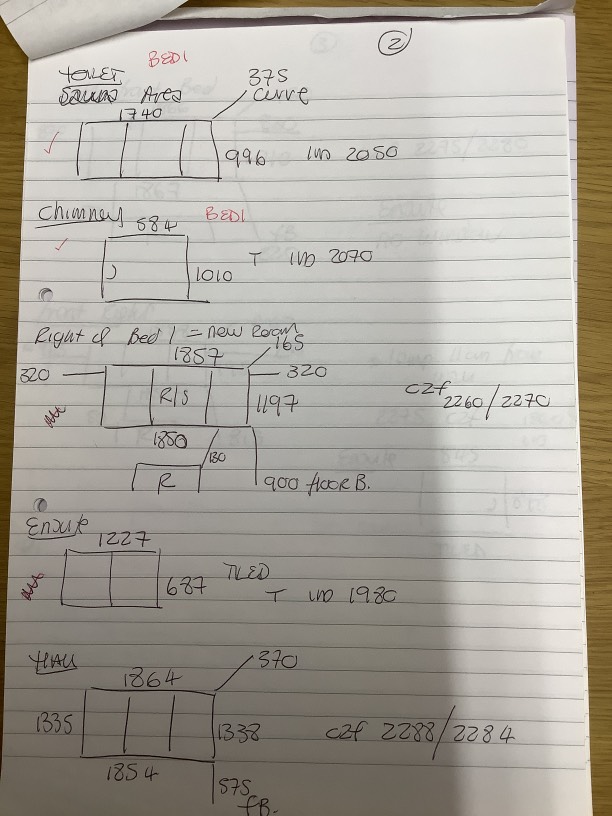 2
BED1
TOILET
375
Area
curve
1740
996 IND 2050
Chimney
584 BED1
1010 T IND 2070
Right of Bed 1 = new room
1857 165
320 320
R/S 1197 C2f 2260/2270
1850
130
R 900 floor B.
Ensuite
1227
687 TILED
T IND 1980
HALL
1864 370
1335 1338 C2f 2288/2284
1854 575
fB.